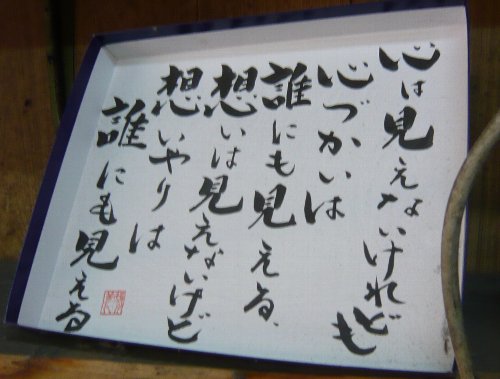 心は見えないけれども
心づかいは
誰にも見える、
想いは見えないけど
想いやりは
誰にも見える